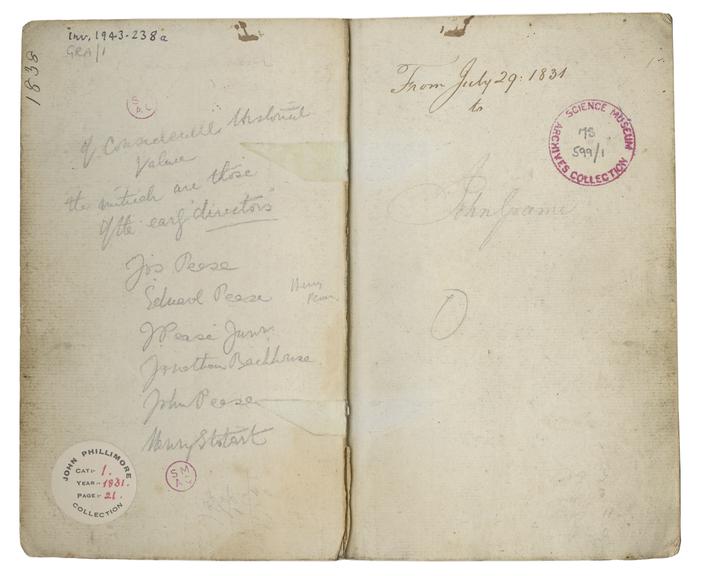 inv. 1943-238a
GRA/1
1838
S
A.C
Of Considerable Historical
Value
the initials are those
of the early directors
Jos Pease
Edward Pease
Henry
Pease
J Pease Junr.
Jonathan Backhouse
John Pease
Henry Stobart
JOHN PHILLIMORE
CAT:- 1.
YEAR:- 1831.
PAGE:- 21.
COLLECTION
S M
A.C
From July 29: 1831
to
SCIENCE MUSEUM
MS
599/1
ARCHIVES COLLECTION
John Graeme